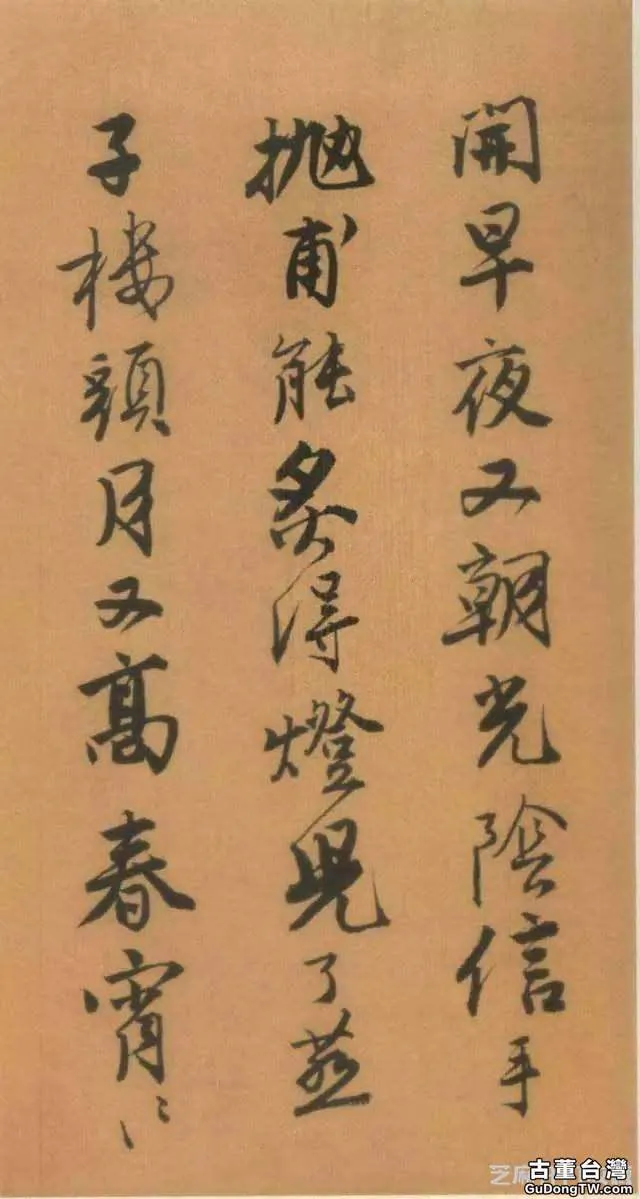 開早夜又朝光陰信手
抛甫能炙得燈兒了燕
子樓頭月又髙春宵〻
古董台灣
GuDongTW.com